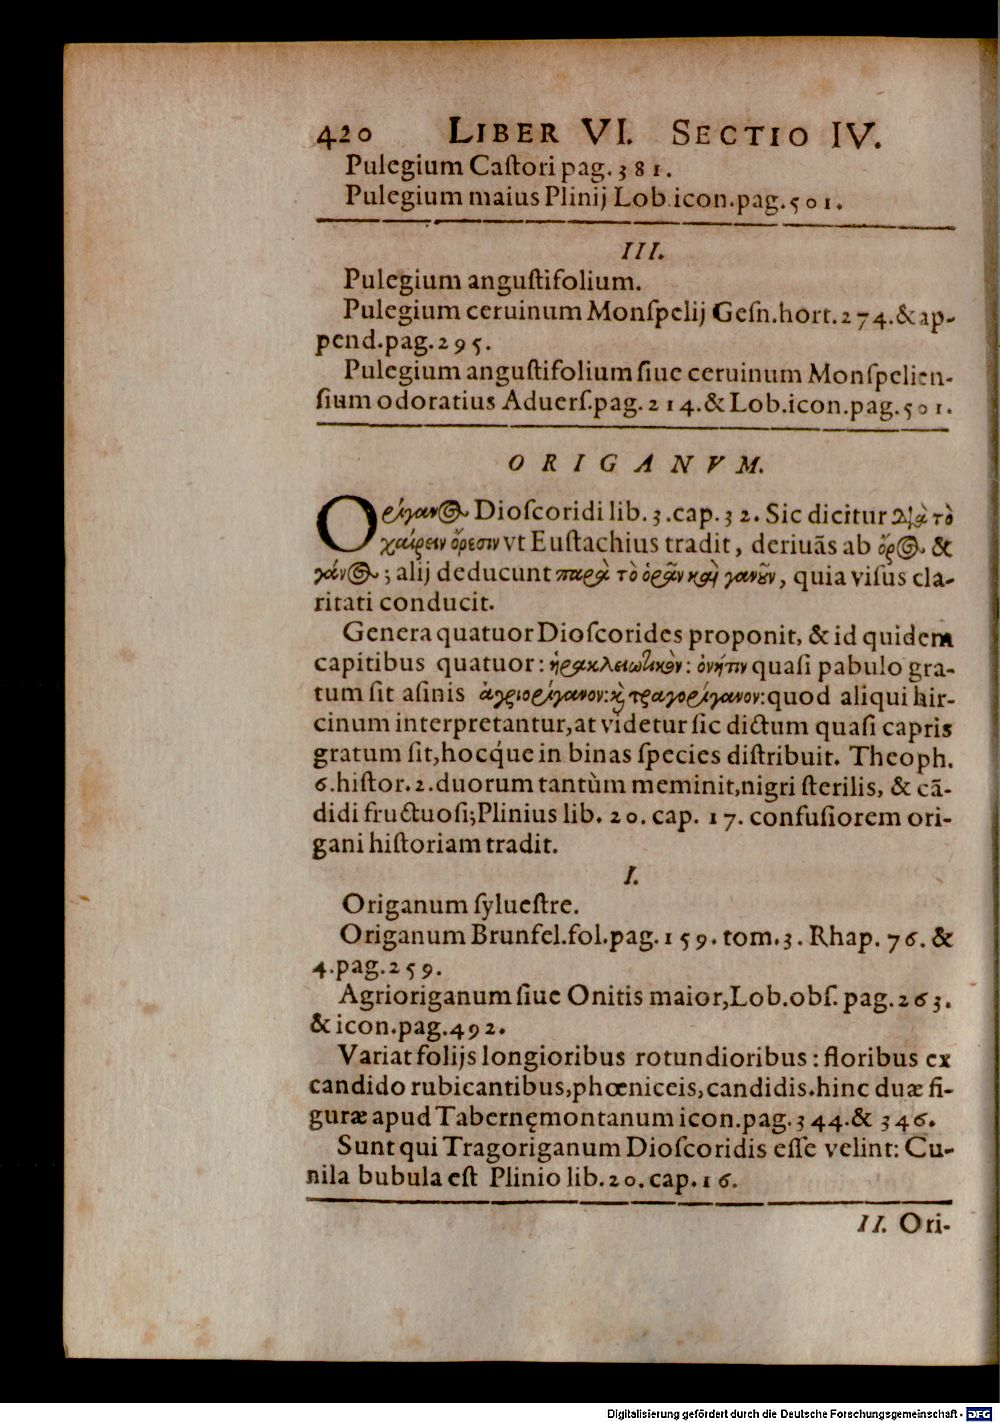 420 LIBER VI. SECTIO IV.
Pulegium Caſtori pag. 381.
Pulegium maius Plinij Lob.icon.pag.501.
III.
Pulegium anguſtifolium.
Pulegium ceruinum Monſpelij Geſn.hort.274.& ap-
pend.pag.295.
Pulegium anguſtifolium ſiue ceruinum Monſpelien-
ſium odoratius Aduerſ.pag.214.& Lob.icon.pag.501.
ORIGANVM.
Ορίγανος Dioſcoridi lib. 3.cap. 32. Sic dicitur διὰ τὸ
χαίρειν ὄρεσιν vt Euſtachius tradit, deriuãs ab ὄρος &
γάνος; alij deducunt παρὰ τὸ ὁρᾶν καὶ γανοῦν, quia viſus cla-
ritati conducit.
Genera quatuor Dioſcorides proponit, & id quidem
capitibus quatuor: ἡρακλειωτικὸν: ὀνῆτιν quaſi pabulo gra-
tum ſit aſinis ἀγριορίγανον: καὶ τραγορίγανον: quod aliqui hir-
cinum interpretantur, at videtur ſic dictum quaſi capris
gratum ſit, hocq́ue in binas ſpecies diſtribuit. Theoph.
6.hiſtor.2.duorum tantùm meminit, nigri ſterilis, & cã-
didi fructuoſi; Plinius lib. 20. cap. 17. confuſiorem ori-
gani hiſtoriam tradit.
I.
Origanum ſylueſtre.
Origanum Brunfel.fol.pag.159. tom.3. Rhap. 76. &
4.pag.259.
Agrioriganum ſiue Onitis maior, Lob.obſ. pag.263.
& icon.pag.492.
Variat folijs longioribus rotundioribus: floribus ex
candido rubicantibus, phœniceis, candidis. hinc duæ fi-
guræ apud Tabernęmontanum icon.pag.344.& 346.
Sunt qui Tragoriganum Dioſcoridis eſſe velint: Cu-
nila bubula eſt Plinio lib.20.cap.16.
II. Ori-
Digitalisierung gefördert durch die Deutsche Forschungsgemeinschaft - DFG